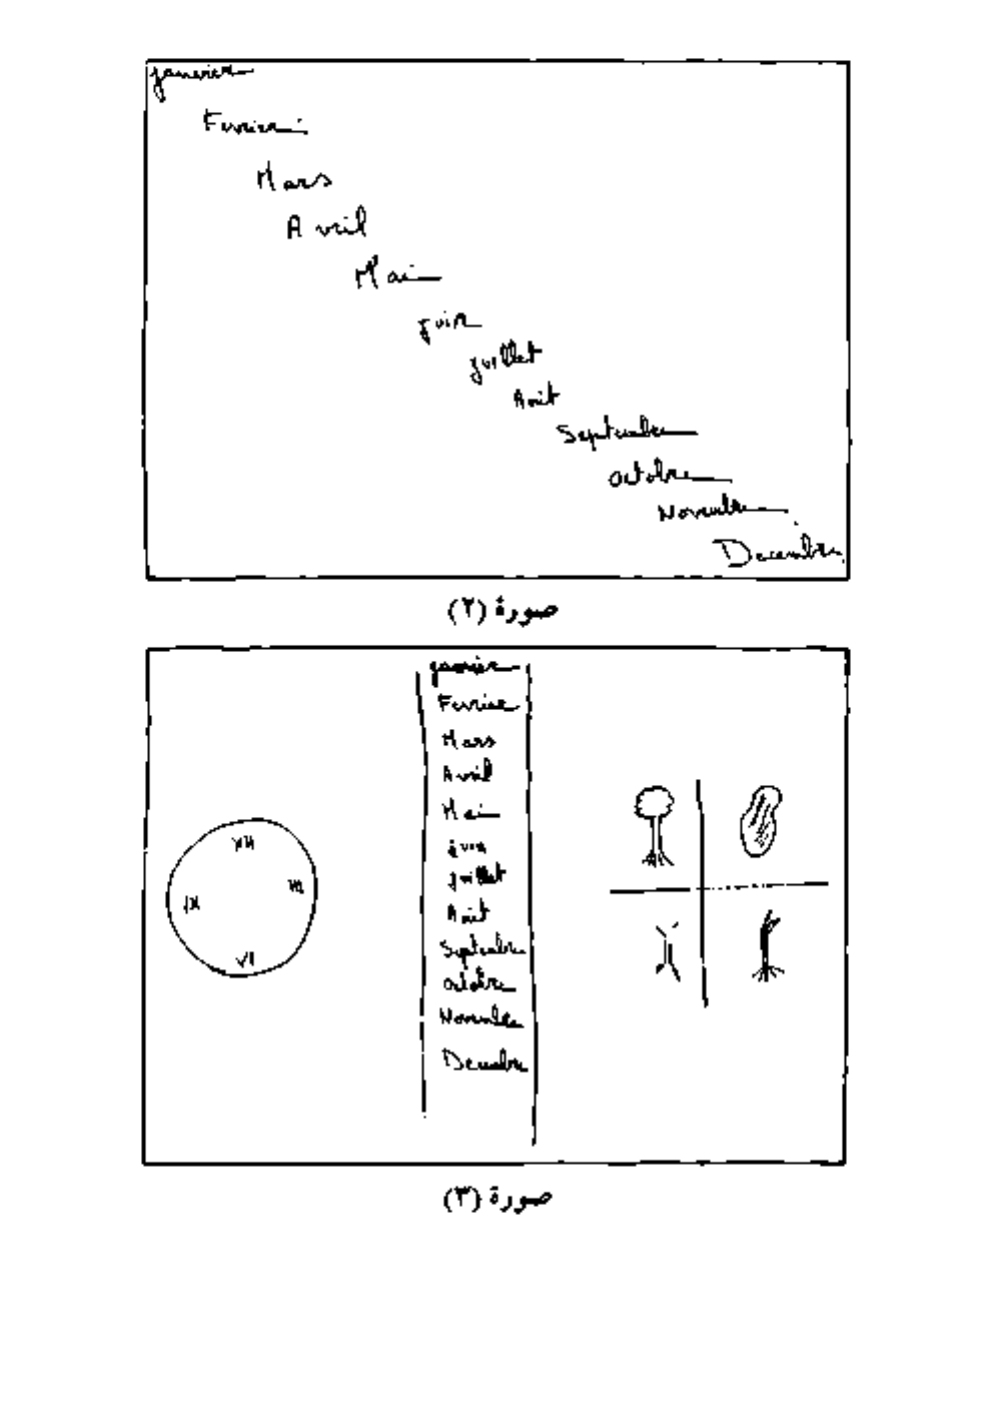 janvier
Fevrier
Mars
Avril
Mai
juin
juillet
Août
Septembre
octobre
Novembre
Decembre
صورة (٢)
janvier
Fevrier
Mars
Avril
Mai
juin
juillet
Août
Septembre
octobre
Novembre
Decembre
XII
III
IX
VI
صورة (٣)